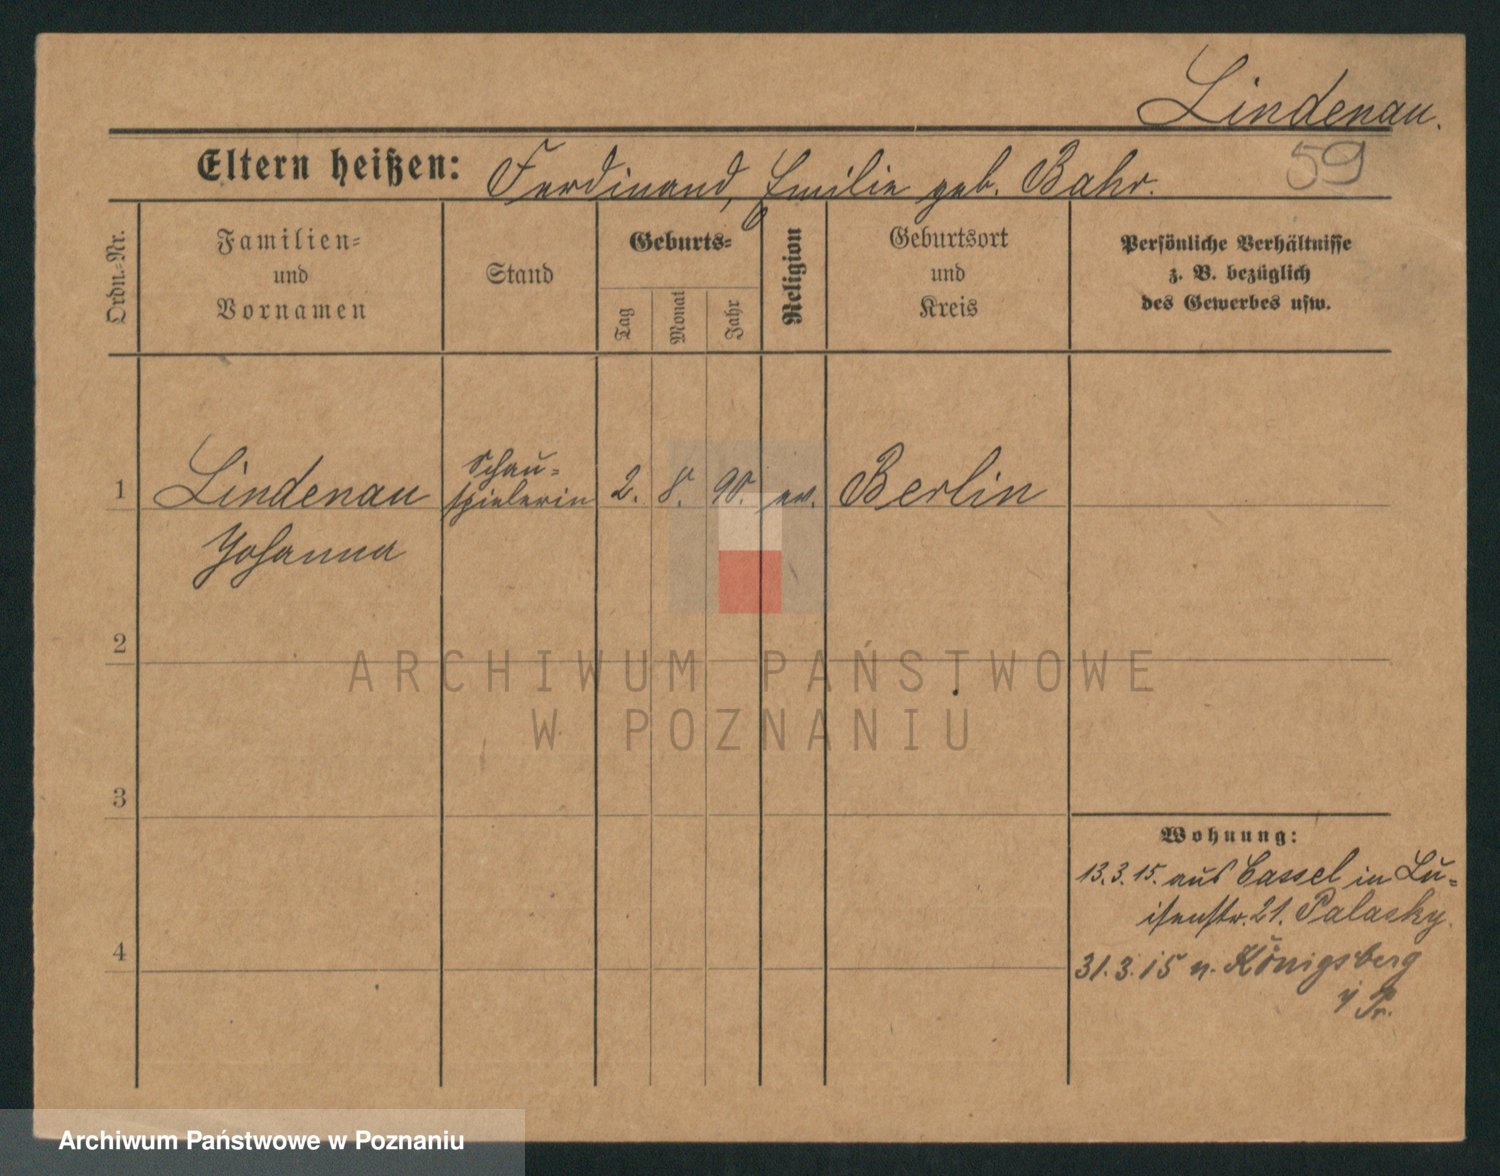 Lindenau.
59
Eltern heißen: Ferdinand, Emilie geb. Bahr.
Ordn.-Nr.
Familien-
und
Vornamen
Stand
Geburts-
Tag
Monat
Jahr
Religion
Geburtsort
und
Kreis
Persönliche Verhältnisse
z. B. bezüglich
des Gewerbes usw.
1 Lindenau Schau-
spielerin 2. 8. 90. ev. Berlin
Johanna
2
3
4
Wohnung:
13.3.15. aus Cassel in Lu-
isenstr. 21. Palasky.
31.3.15 n. Königsberg
i/Pr.
ARCHIWUM PAŃSTWOWE
W POZNANIU
Archiwum Państwowe w Poznaniu